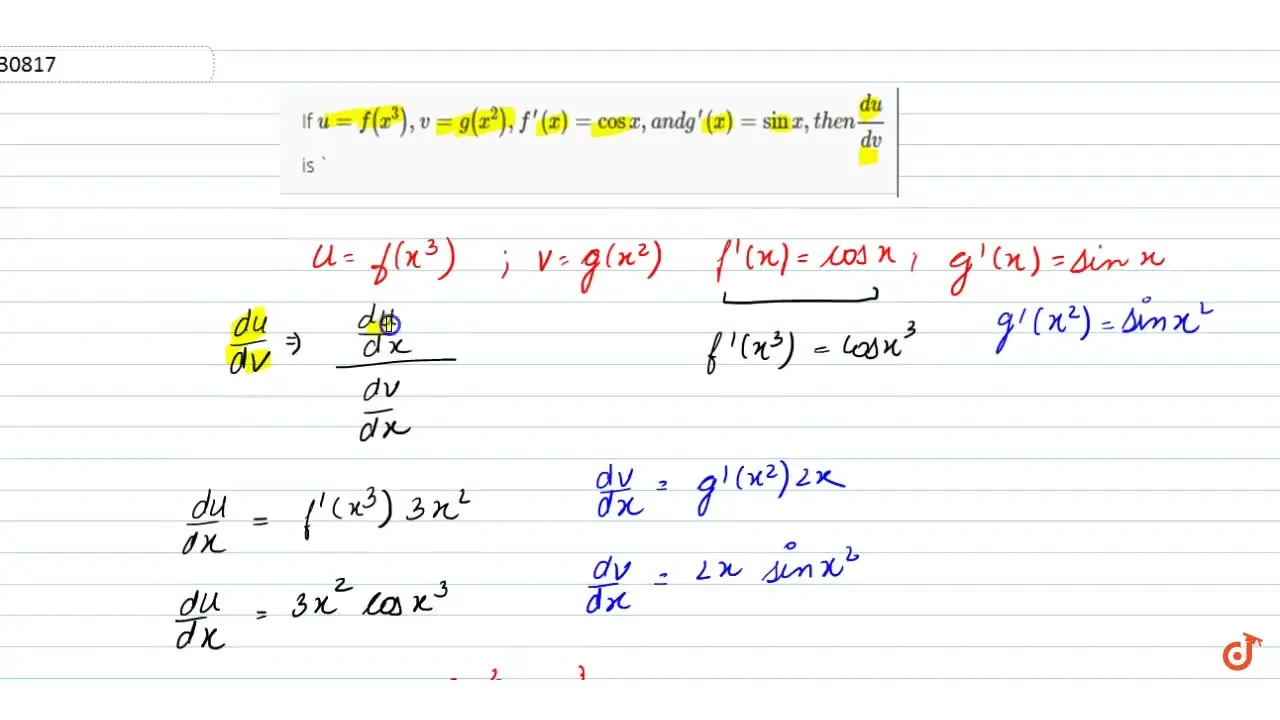 30817
If u = f(x³), v = g(x²), f′(x) = cos x, andg′(x) = sin x, then du/dv
is `
u = f(x³) ; v = g(x²) f′(x) = cos x ; g′(x) = sin x
du/dv ⇒ (du/dx)/(dv/dx) f′(x³) = cos x³ g′(x²) = sin x²
du/dx = f′(x³) 3x² dv/dx = g′(x²) 2x
du/dx = 3x² cos x³ dv/dx = 2x sin x²